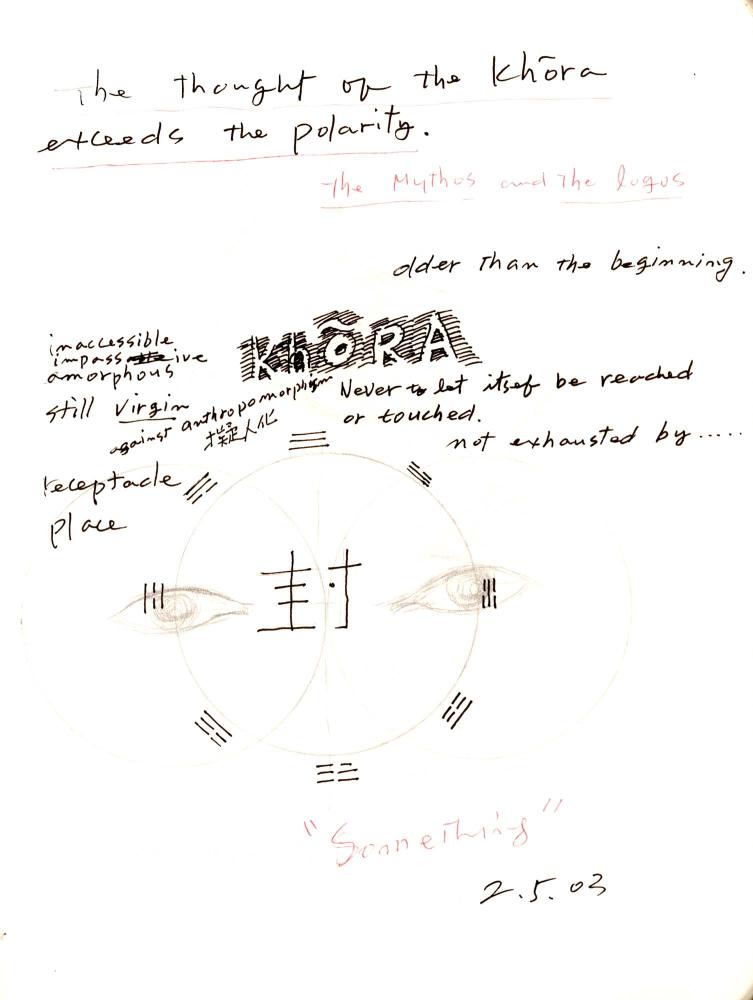 The thought of the Khōra
exceeds the polarity.
The Mythos and The logos
older than the beginning.
KhōRA
inaccessible
impassive
amorphous
still Virgin
against anthropomorphism
擬人化
Never to let itsef be reached
or touched.
not exhausted by.....
receptacle
place
封
"Something"
2.5.03